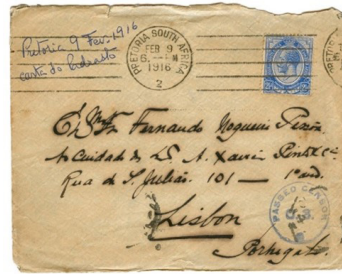 Pretoria 9 Fev. 1916
carta do Padrasto
PRETORIA, SOUTH AFRICA
FEB 9
6. — PM
1916
2
Fernando Nogueira Pessôa
Ao Cuidado de D. A. Xavier Pinto & Cº
Rua de S. Julião, 101 — 1º and.
Lisbon
Portugal
PASSED CENSOR